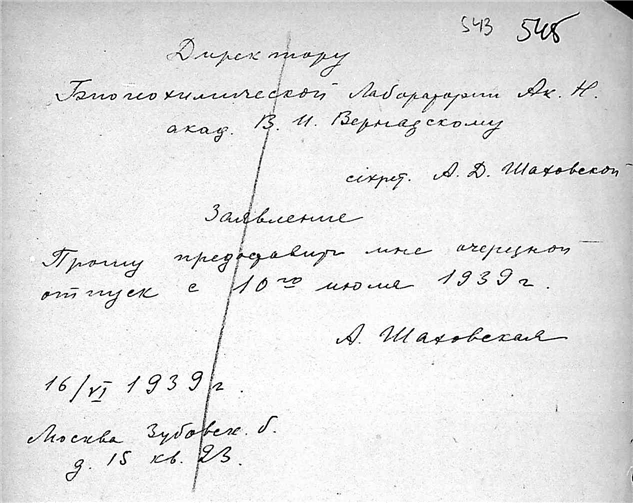 543 548
Директору
Биогеохимической Лаборатории Ак. Н.
акад. В. И. Вернадскому
секрет. А. Д. Шаховской
Заявление
Прошу предоставить мне очередной
отпуск с 10го июля 1939 г.
А. Шаховская
16/VI 1939 г.
Москва Зубовск. б.
д. 15 кв. 23.